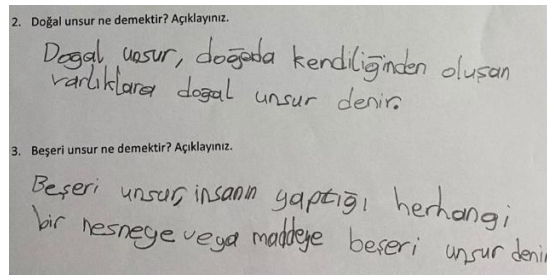 2. Doğal unsur ne demektir? Açıklayınız.
Dogal unsur, doğada kendiliğinden oluşan
varlıklara dogal unsur denir.
3. Beşeri unsur ne demektir? Açıklayınız.
Beşeri unsur, insanın yaptığı herhangi
bir nesneye veya maddeye beşeri unsur denir